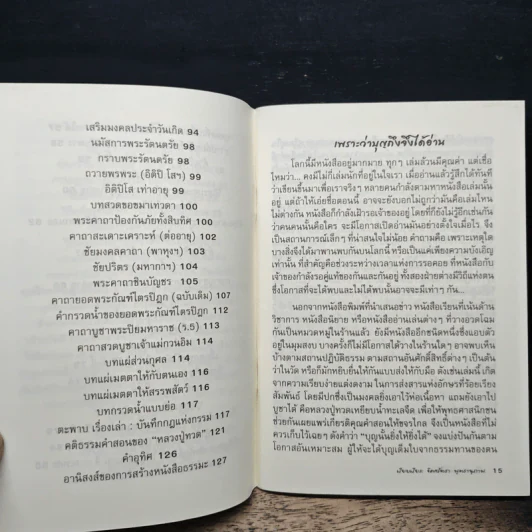 เสริมมงคลประจำวันเกิด 94
นมัสการพระรัตนตรัย 98
กราบพระรัตนตรัย 98
ถวายพรพระ (อิติปิ โสฯ) 99
อิติปิโส เท่าอายุ 99
บทสวดขอขมาเทวดา 100
พระคาถาป้องกันภัยทั้งสิบทิศ 100
คาถาสะเดาะเคราะห์ (ต่ออายุ) 100
ชัยมงคลคาถา (พาหุงฯ) 100
ชัยปริตร (มหากาฯ) 100
พระคาถาชินบัญชร 105
คาถายอดพระกัณฑ์ไตรปิฎก (ฉบับเดิม) 107
คำกรวดน้ำของยอดพระกัณฑ์ไตรปิฎก 111
คาถาบูชาพระปิยมหาราช (ร.5) 113
คาถาสวดบูชาเจ้าแม่กวนอิม 114
บทแผ่ส่วนกุศล 114
บทแผ่เมตตาให้กับตนเอง 116
บทแผ่เมตตาให้สรรพสัตว์ 116
บทกรวดน้ำแบบย่อ 117
ตะพาบ เรื่องเล่า : บันทึกกฎแห่งกรรม 117
คติธรรมคำสอนของ "หลวงปู่ทวด" 121
คำอุทิศ 126
อานิสงส์ของการสร้างหนังสือธรรมะ 127
เพราะว่าบุญถึงจึงได้อ่าน
โลกนี้มีหนังสืออยู่มากมาย ทุกๆ เล่มล้วนมีคุณค่า แต่เชื่อ
ไหมว่า... คงมีไม่กี่เล่มนักที่อยู่ในใจเรา เมื่ออ่านแล้วรู้สึกได้ทันที
ว่าเขียนขึ้นมาเพื่อเราจริงๆ หลายคนกำลังตามหาหนังสือเล่มนั้น
อยู่ แต่ถ้าให้เอ่ยชื่อตอนนี้ อาจจะยังบอกไม่ถูกว่ามันคือเล่มไหน
ไม่ต่างกัน หนังสือก็กำลังเฝ้ารอเจ้าของอยู่ โดยที่ก็ยังไม่รู้อีกเช่นกัน
ว่าคนคนนั้นคือใคร จะมีโอกาสเปิดอ่านมันอย่างตั้งใจเมื่อไร จึง
เป็นสถานการณ์เล็กๆ ที่น่าสนใจไม่น้อย คำถามคือ เพราะเหตุใด
บางสิ่งจึงได้มาพานพบกันบนโลกนี้ หรือเป็นแค่เพียงความบังเอิญ
เท่านั้น ที่สำคัญคือช่วงระหว่างเวลาแห่งการรอคอย ที่หนังสือกับ
เจ้าของกำลังรอคู่แท้ของกันและกันอยู่ ทั้งสองฝ่ายต่างมีวิถีแห่งตน
ซึ่งโอกาสที่จะได้พบและไม่ได้พบนั้นอาจจะมีเท่าๆ กัน...
นอกจากหนังสือพิมพ์ที่นำเสนอข่าว หนังสือเรียนที่เน้นด้าน
วิชาการ หนังสือนิยาย หรือหนังสืออ่านเล่นต่างๆ ที่วางอวดโฉม
กันเป็นหมวดหมู่ในร้านแล้ว ยังมีหนังสืออีกชนิดหนึ่งซึ่งแอบตัว
อยู่ในมุมสงบ บางครั้งก็ไม่มีโอกาสได้วางในร้านใดๆ อาจพบเห็น
บ้างตามสถานปฏิบัติธรรม ตามสถานอันศักดิ์สิทธิ์ต่างๆ เป็นต้น
ว่าในวัด หรือก็มักหยิบยื่นให้กันแบบส่งให้กับมือ ดังเช่นเล่มนี้ เกิด
จากความเรียบง่ายแต่งดงาม ในการส่งสารแห่งอักษรที่ร้อยเรียง
สัมพันธ์ โดยมีปกซึ่งเป็นมงคลยิ่งเอาไว้ห่อเนื้อหา แถมยังเอาไป
บูชาได้ คือหลวงปู่ทวดเหยียบน้ำทะเลจืด เพื่อให้พุทธศาสนิกชน
ช่วยกันเผยแพร่เกียรติคุณคำสอนให้ขจรไกล จึงเป็นหนังสือที่ไม่
ควรเก็บไว้เฉยๆ ดังคำว่า "บุญนั้นยิ่งให้ยิ่งได้" จงแบ่งปันกันตาม
โอกาสอันเหมาะสม ผู้ให้จะได้บุญเต็มใบจากธรรมทานของตน
15